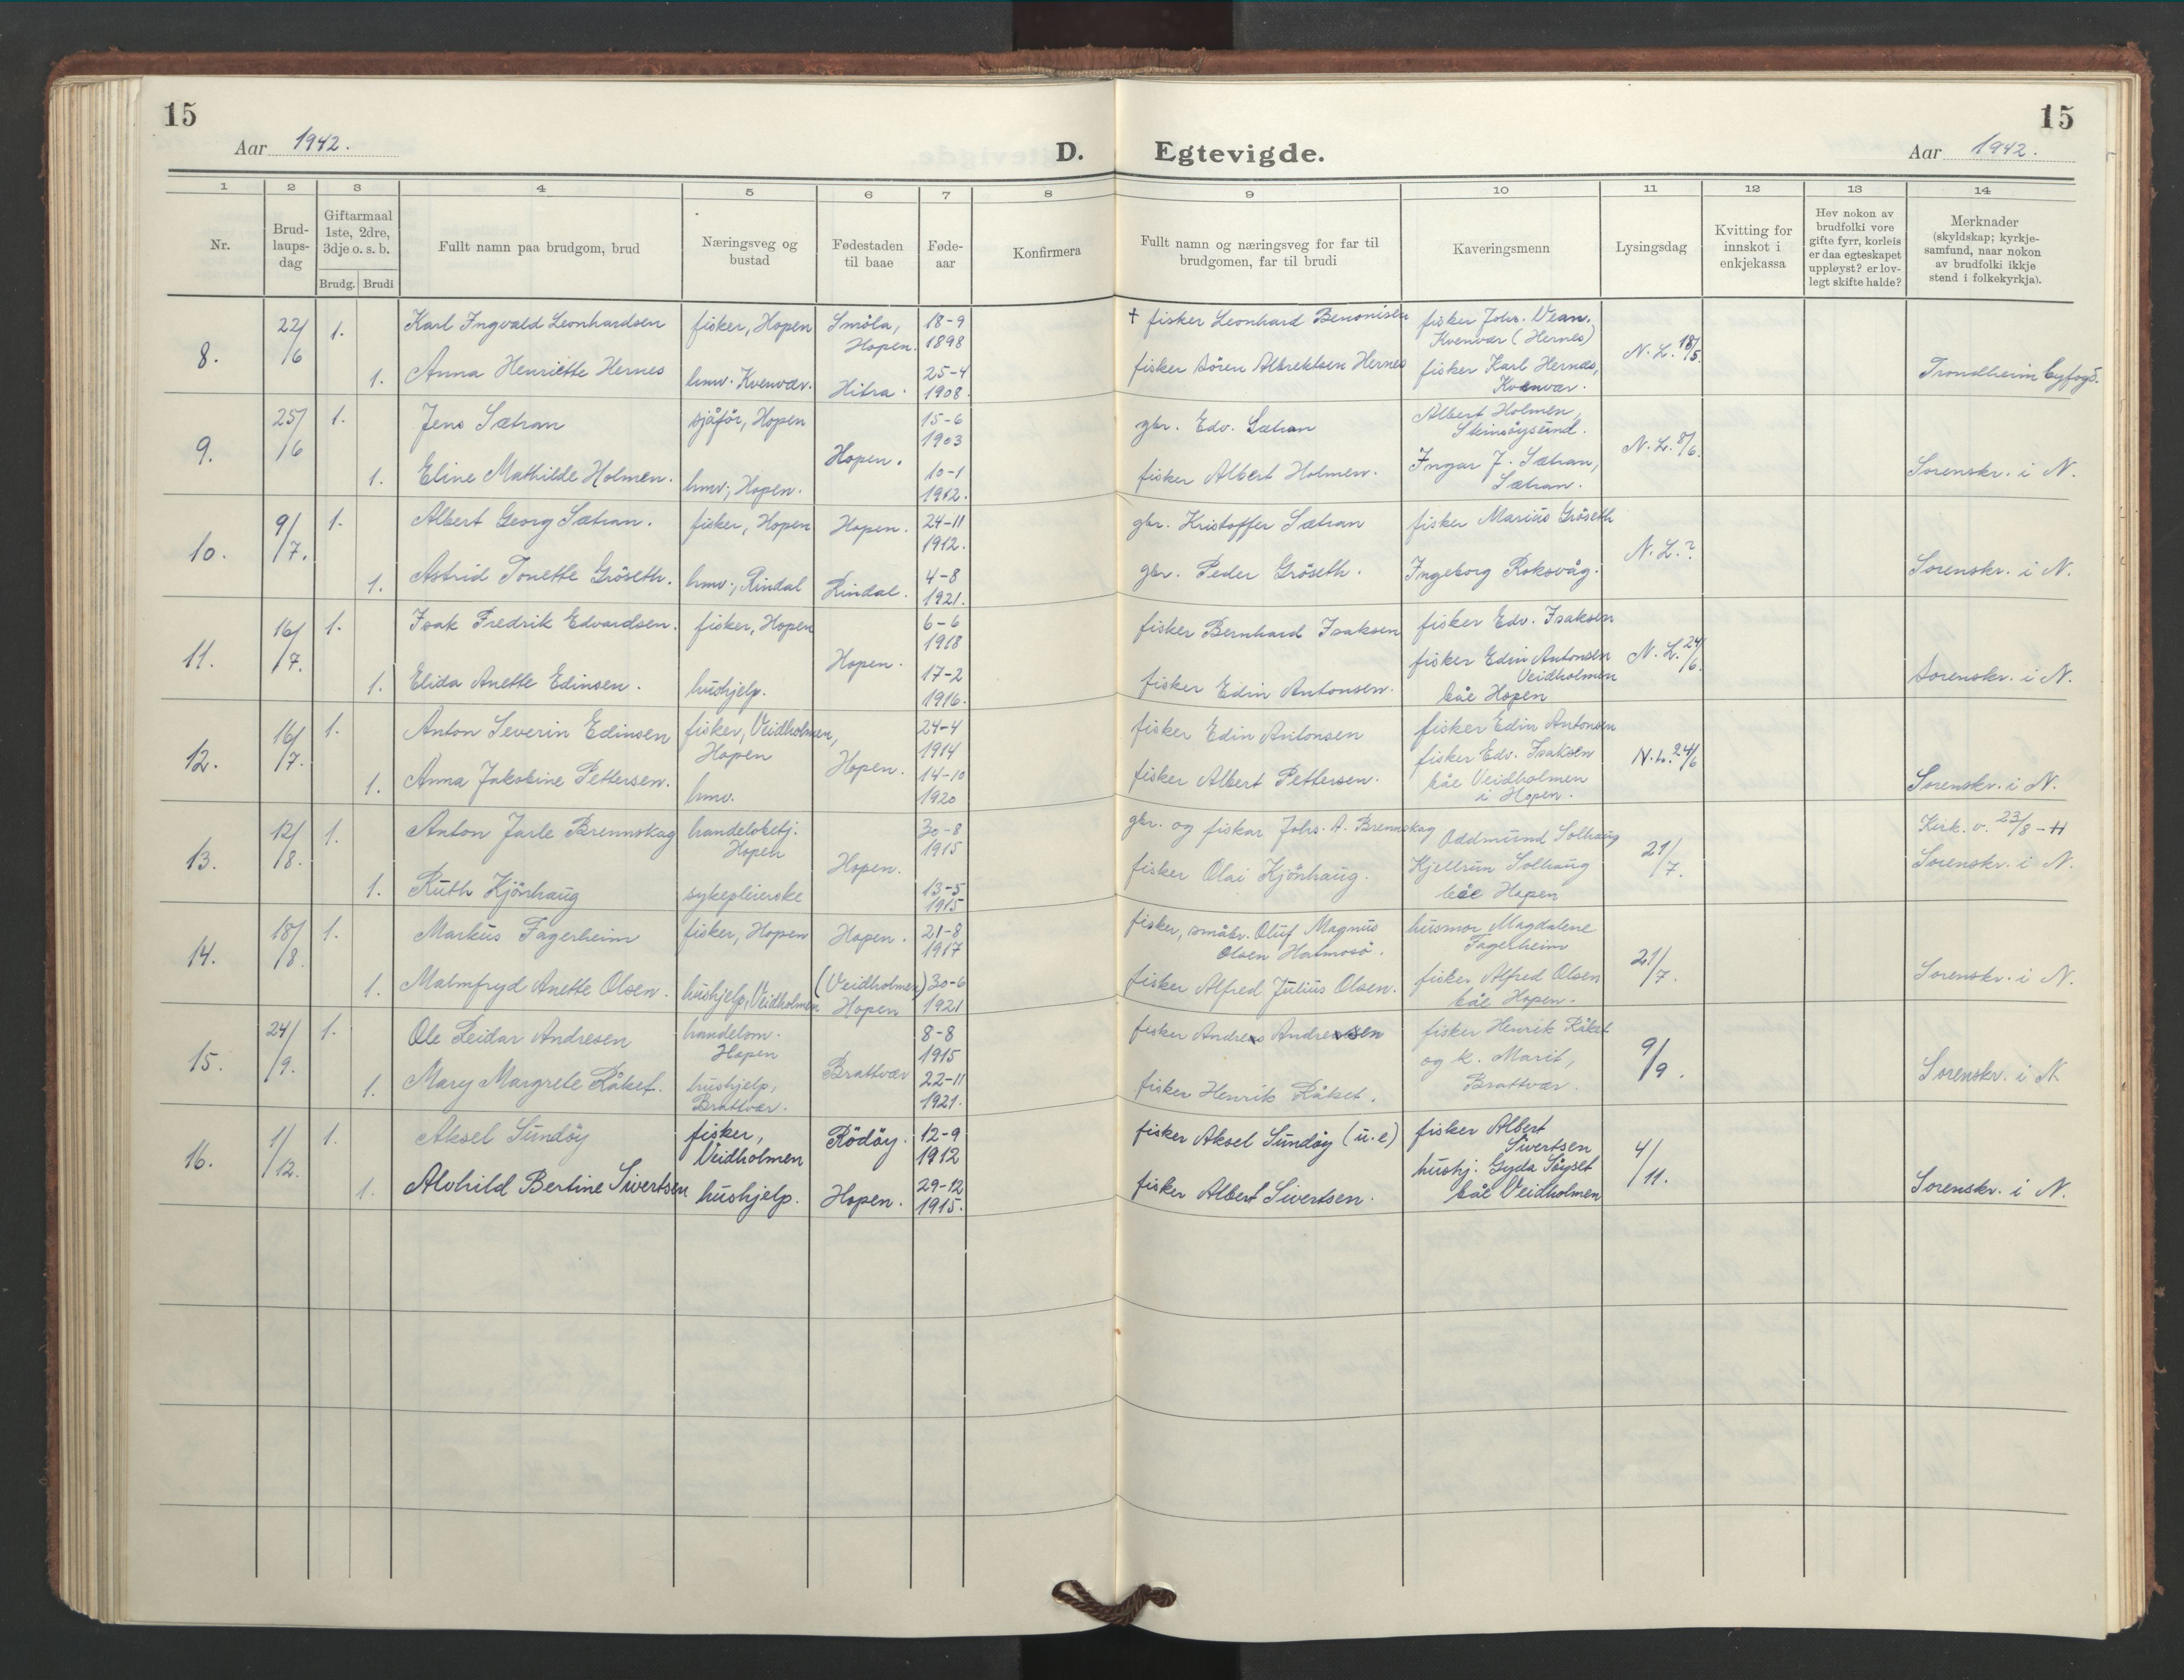 15
15
Aar 1942.
D. Egtevigde.
Aar 1942.
1 2 3 4 5 6 7 8 9 10 11 12 13 14
Nr.
Brud-
laups-
dag
Giftarmaal
1ste, 2dre,
3dje o. s. b.
Brudg. Brudi
Fullt namn paa brudgom, brud
Næringsveg og
bustad
Fødestaden
til baae
Føde-
aar
Konfirmera
Fullt namn og næringsveg for far til
brudgomen, far til brudi
Kaveringsmenn
Lysingsdag
Kvitting for
innskot i
enkjekassa
Hev nokon av
brudfolki vore
gifte fyrr, korleis
er daa egteskapet
uppløyst? er lov-
legt skifte halde?
Merknader
(skyldskap; kyrkje-
samfund, naar nokon
av brudfolki ikkje
stend i folkekyrkja).
8. 22/6 1. Karl Ingvald Leonhardsen fisker, Hopen Smöla, Hopen. 18-9 1898 † fisker Leonhard Benonisen fisker Johs. Vean. Kvenvær (Hernes) N. L. 18/5.
1. Anna Henriette Hernes hmv. Kvenvær. Hitra. 25-4 1908. fisker Sören Albrektsen Hernes fisker Karl Hernes, Kvenvær. Trondheim byfogd.
9. 25/6 1. Jens Sætran sjåför, Hopen Hopen. 15-6 1903 gbr. Edv. Sætran Albert Holmen, Steinsöysund. N. L. 8/6.
1. Eline Mathilde Holmen. hmv., Hopen. 10-1 1912. fisker Albert Holmen. Ingar J. Sætran, Sætran. Sorenskr. i N.
10. 9/7. 1. Albert Georg Sætran. fisker, Hopen Hopen. 24-11 1912. gbr. Kristoffer Sætran fisker Marius Gröseth N. L. ?
1. Astrid Tonette Gröseth. hmv., Rindal Rindal. 4-8 1921. gbr. Peder Gröseth. Ingeborg Roksvåg. Sorenskr. i N.
11. 16/7. 1. Isak Fredrik Edvardsen. fisker, Hopen Hopen. 6-6 1918 fisker Bernhard Isaksen fisker Edv. Isaksen N. L. 24/6.
1. Elida Anette Edinsen. hushjelp. 17-2 1916. fisker Edin Antonsen. fisker Edin Antonsen Veidholmen båe Hopen Sorenskr. i N.
12. 16/7. 1. Anton Severin Edinsen fisker, Veidholmen, Hopen Hopen. 24-4 1914 fisker Edin Antonsen fisker Edin Antonsen N. L. 24/6
1. Anna Jakobine Pettersen. hmv. 14-10 1920 fisker Albert Pettersen. fisker Edv. Isaksen båe Veidholmen i Hopen. Sorenskr. i N.
13. 12/8. 1. Anton Jarle Brennskag handelsbetj. Hopen Hopen. 30-8 1915 gbr. og fiskar Johs. A. Brennskag Oddmund Solhaug 21/7. Kirk. v. 23/8 -
1. Ruth Kjönhaug sykepleierske 13-5 1915 fisker Olai Kjönhaug. Kjellrun Solhaug båe Hopen Sorenskr. i N.
14. 18/8. 1. Markus Fagerheim fisker, Hopen Hopen. 21-8 1917 fisker, småbr. Oluf Magnus Olsen husmor Magdalene Fagerheim 21/7.
1. Malmfryd Anette Olsen. hushjelp, Veidholmen (Veidholmen) Hopen 30-6 1921 fisker Alfred Julius Olsen. fisker Alfred Olsen båe Hopen. Sorenskr. i N.
15. 24/9. 1. Ole Reidar Andresen handelsm. Hopen Brattvær 8-8 1915 fisker Andreas Andresen fisker Henrik Råket 9/9.
1. Mary Margrete Råket. hushjelp, Brattvær. 22-11 1921. fisker Henrik Råket. og k. Marit, Brattvær. Sorenskr. i N
16. 1/12. 1. Aksel Sundöy fisker, Veidholmen Rödöy. 12-9 1912 fisker Aksel Sundöy (u.e) fisker Albert Sivertsen 4/11.
1. Alvhild Bertine Sivertsen hushjelp. Hopen. 29-12 1915. fisker Albert Sivertsen. hushj. Gyda Söyset båe Veidholmen Sorenskr. i N.